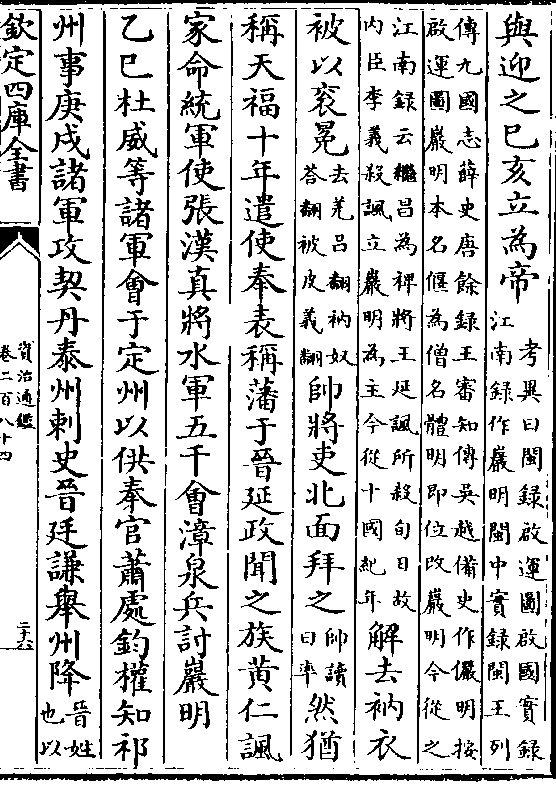 與迎之已亥立為帝
考異曰閩録啟運圖啟國實録
江南録作巖明閩中實録閩王列
傳九國志薛史唐餘録王審知傳吳越備史作儼明按
啟運圖巖明本名偃為僧名體明即位改巖明今從之
江南録云繼昌為裨將王延諷所殺旬日故
内臣李義殺諷立巖明為主今從十國紀年
解去衲衣
被以衮冕
去羌呂翻衲奴
荅翻被皮義翻
帥將吏北面拜之
帥讀
曰率
然猶
稱天福十年遣使奉表稱藩于晉延政聞之族黃仁諷
家命統軍使張漢真將水軍五千會漳泉兵討巖明
乙巳杜威等諸軍會于定州以供奉官蕭處鈞權知祁
州事庚戌諸軍攻契丹泰州刺史晉廷謙舉州降
晉姓
也以
欽定四庫全書
資治通鑑
卷二百八十四
二十六